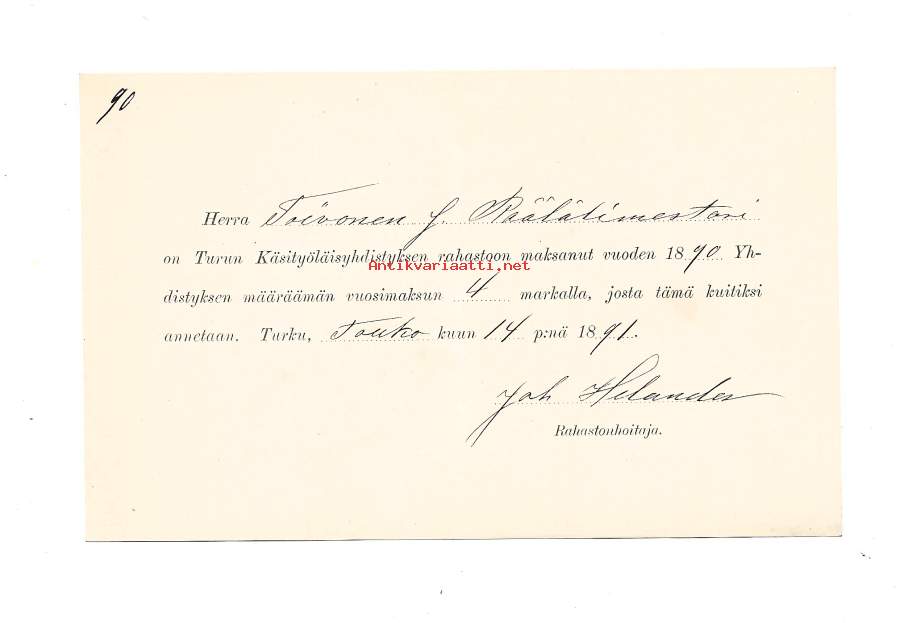 90
Herra Toivonen J. Räälälimestari
on Turun Käsityöläisyhdistyksen rahastoon maksanut vuoden 1890 Yh-
Antikvariaatti.net
distyksen määräämän vuosimaksun 4 markalla, josta tämä kuitiksi
annetaan. Turku, Touko kuun 14 p:nä 1891.
Joh Helander
Rahastonhoitaja.